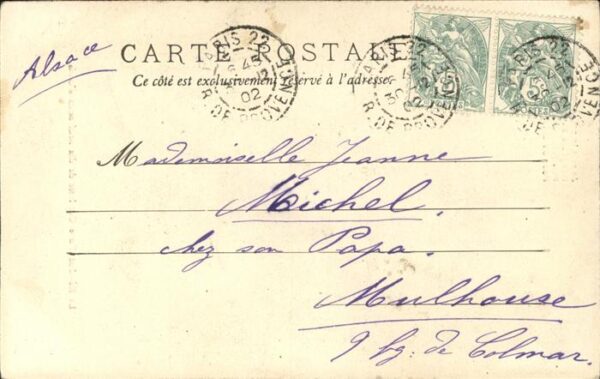 Alsace
CARTE POSTALE
Ce côté est exclusivement réservé à l'adresse
PARIS 22
R. DE PROVENCE
02
PARIS 22
R. DE PROVENCE
02
PARIS 22
R. DE PROVENCE
02
Mademoiselle Jeanne
Michel.
chez son Papa.
Mulhouse
9 fg. de Colmar.